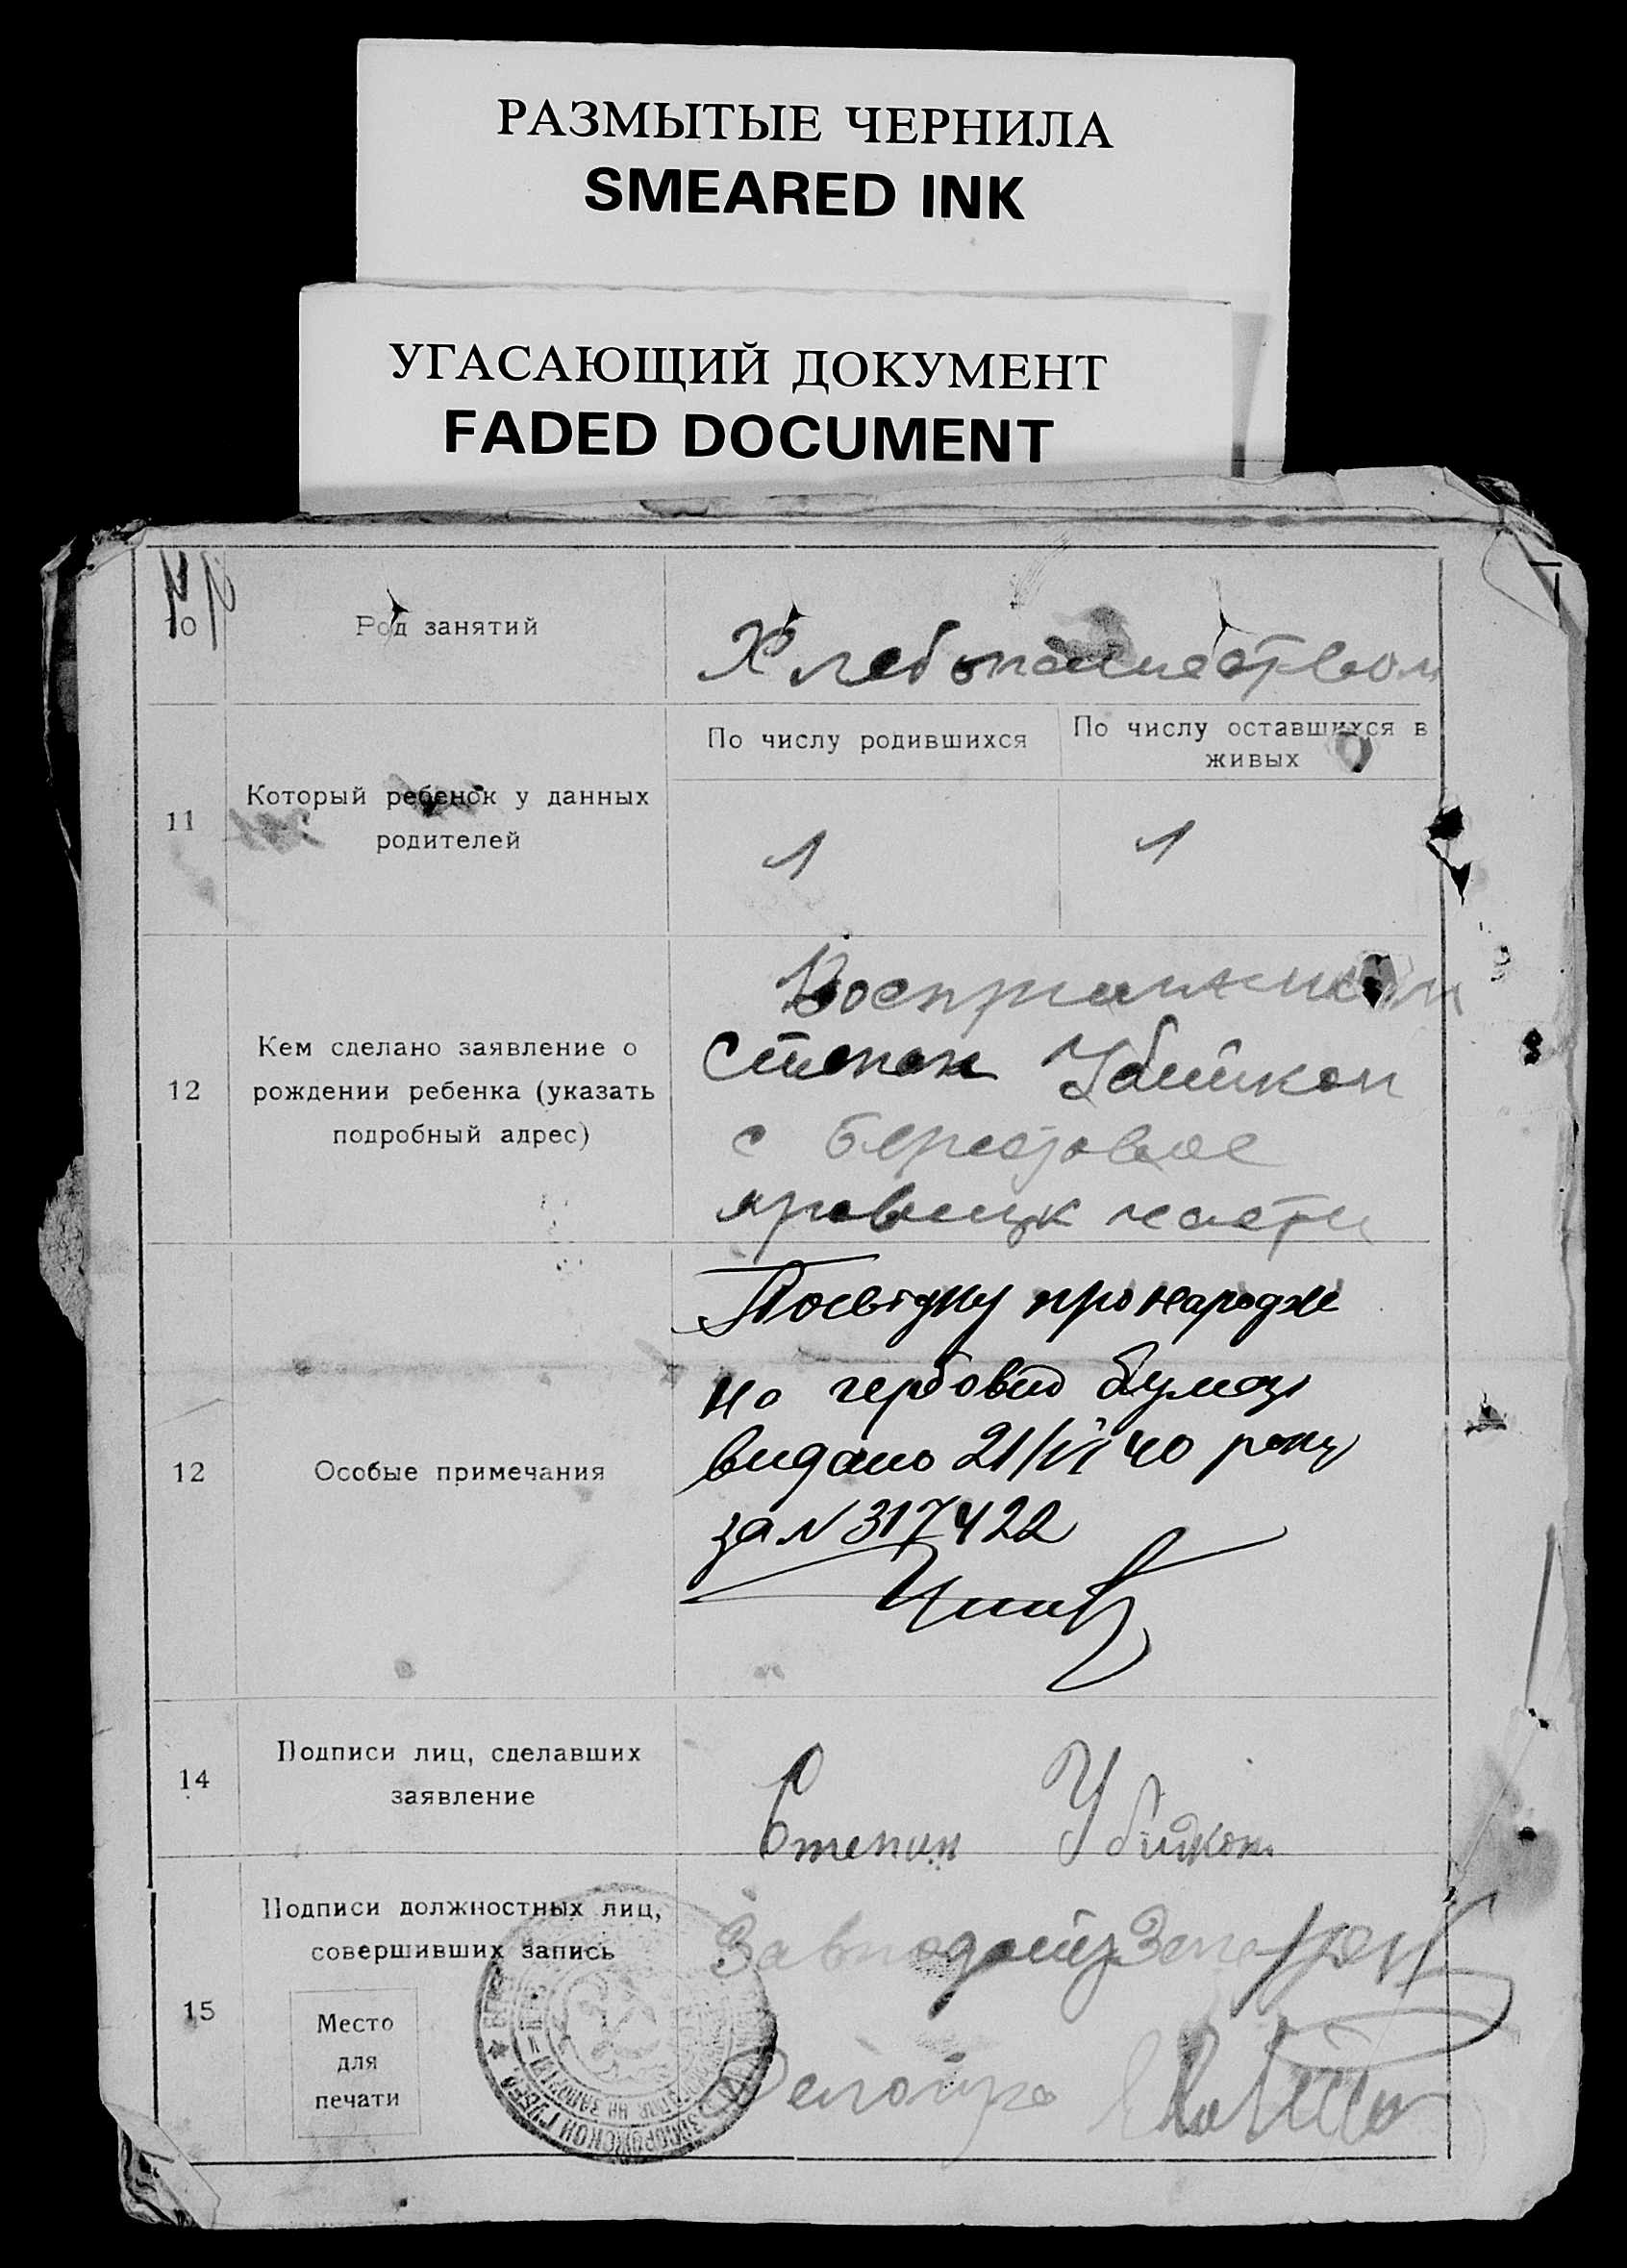 РАЗМЫТЫЕ ЧЕРНИЛА
SMEARED INK
УГАСАЮЩИЙ ДОКУМЕНТ
FADED DOCUMENT
10
Род занятий
Хлебопашеством
11
Который ребенок у данных
родителей
По числу родившихся
По числу оставшихся в
живых
1
1
12
Кем сделано заявление о
рождении ребенка (указать
подробный адрес)
Степан
с
части
12
Особые примечания
Посвідку про народже
на гербовій бумазі
видано 21/VI 40 року
за N 317422
14
Подписи лиц, сделавших
заявление
Степан
15
Подписи должностных лиц,
совершивших запись
Место
для
печати